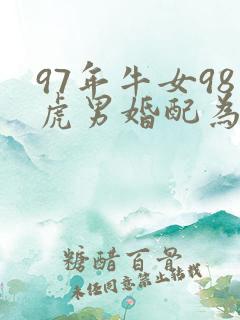 97年牛女98
虎男婚配為
糖醋百骨
未经同意禁止转载